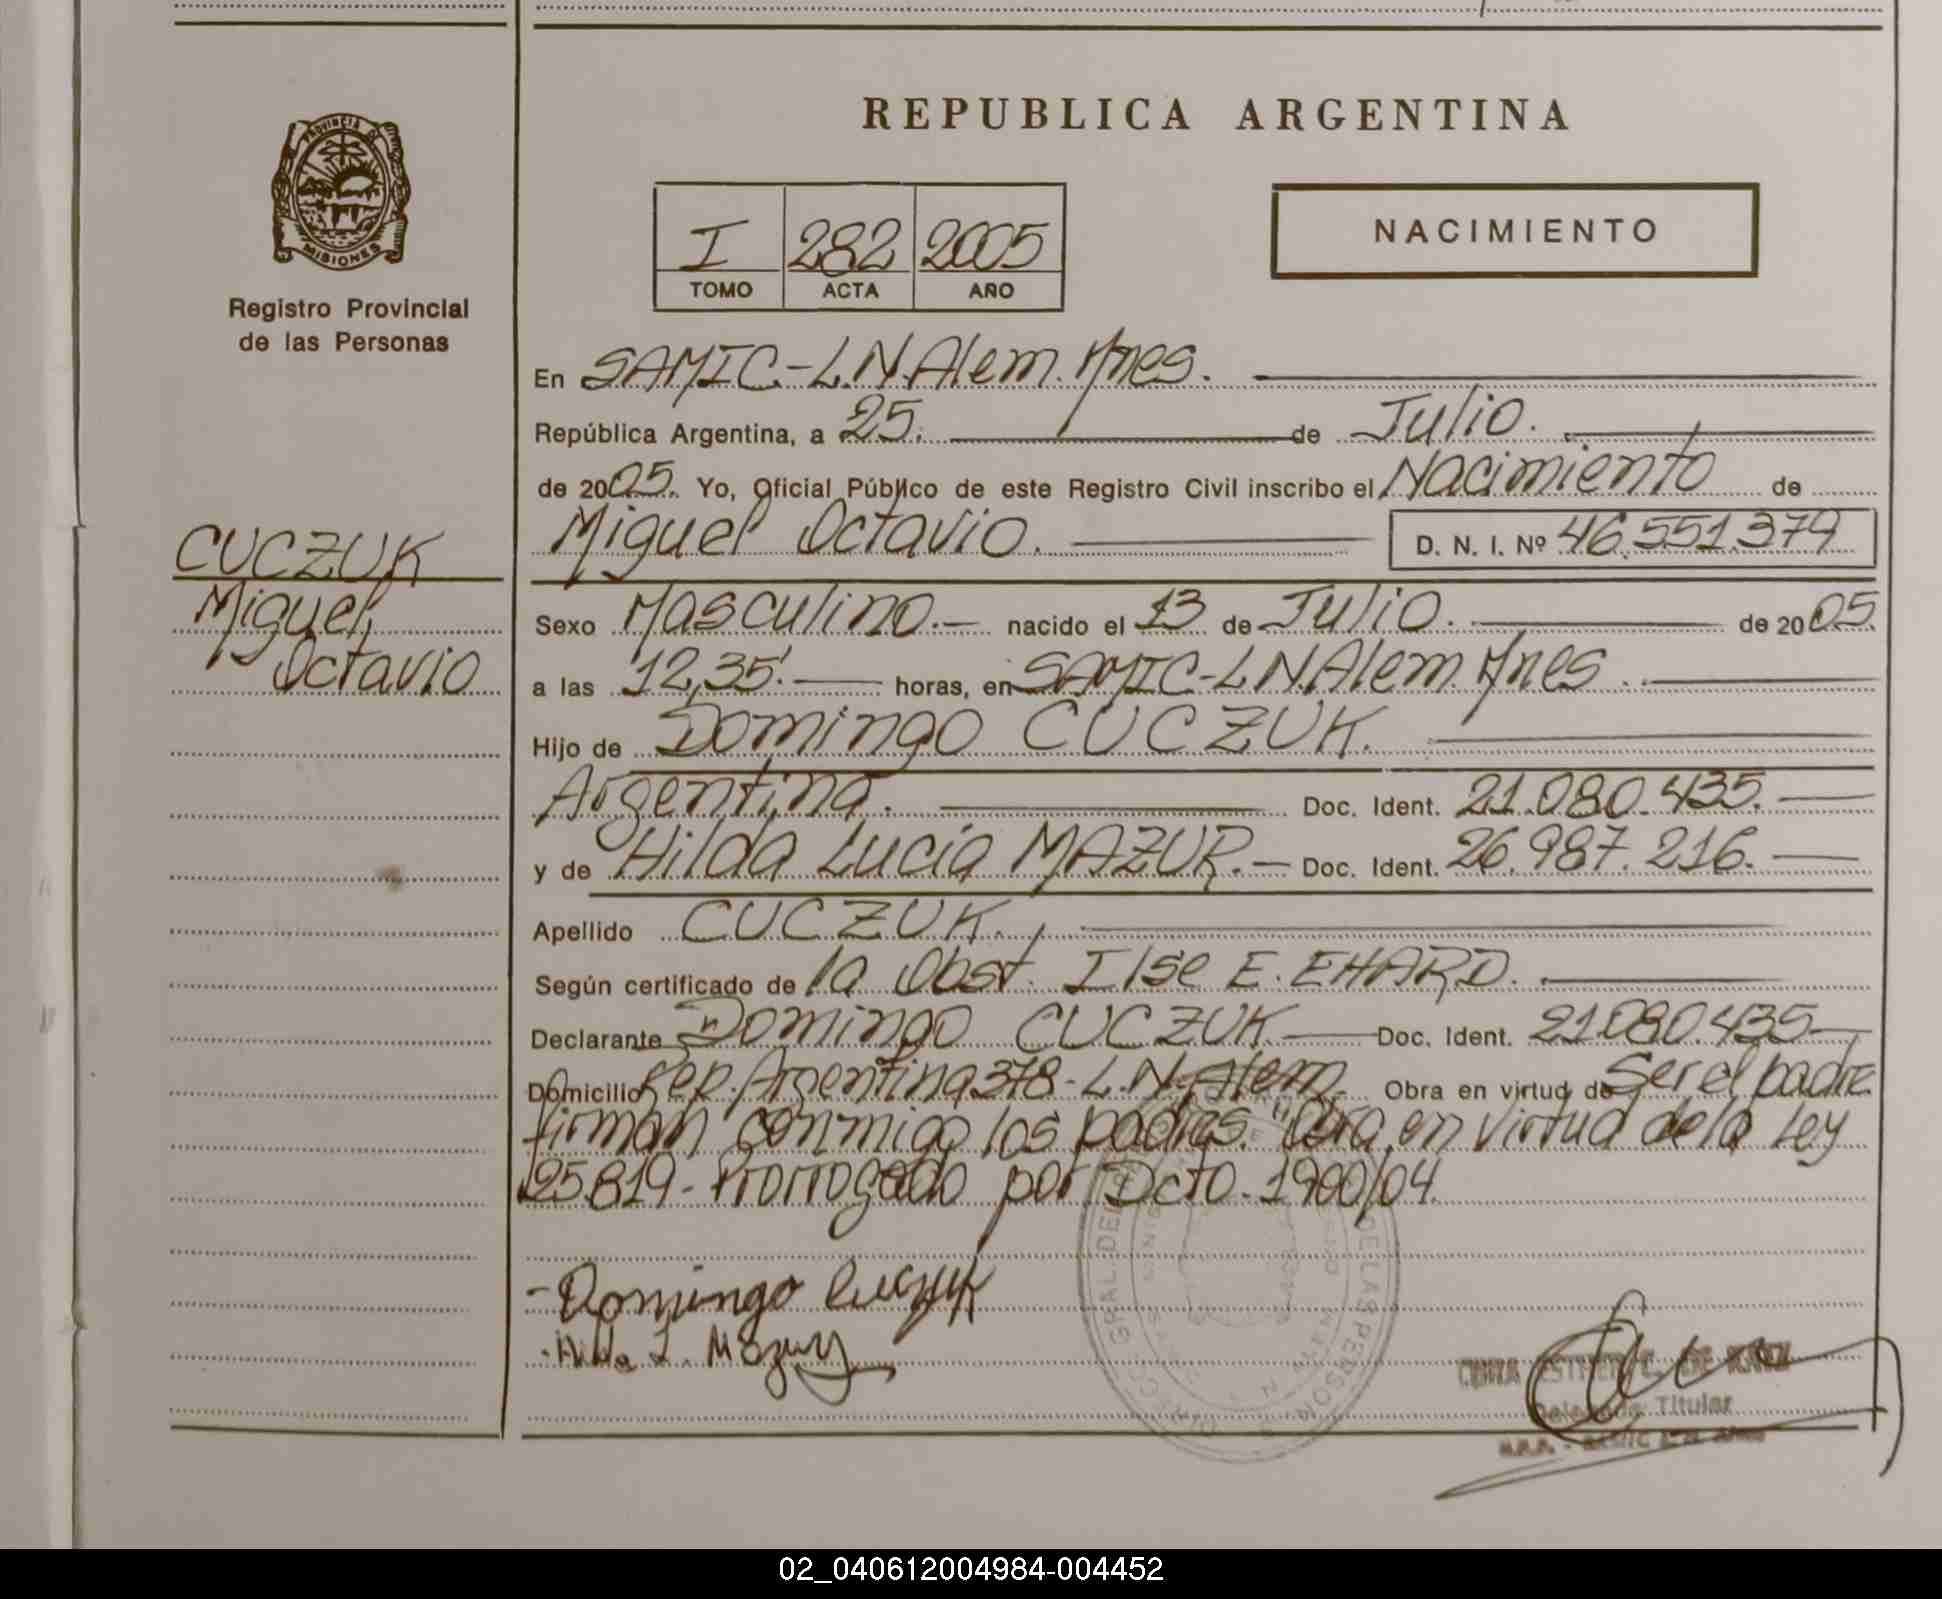 REPUBLICA ARGENTINA
PROVINCIA DE
MISIONES
Registro Provincial
de las Personas
I 282 2005
TOMO ACTA AÑO
NACIMIENTO
En SAMIC-L.N.Alem. Mnes.
República Argentina, a 25. de Julio.
de 2005. Yo, Oficial Público de este Registro Civil inscribo el Nacimiento de
Miguel Octavio. D. N. I. Nº 46.551.379
CUCZUK
Miguel
Octavio
Sexo Masculino.- nacido el 13 de Julio. de 2005
a las 12,35. horas, en SAMIC-L.N.Alem. Mnes
Hijo de Domingo CUCZUK.
Argentina. Doc. Ident. 21.080.435.
y de Hilda Lucía MAZUR.- Doc. Ident. 26.987.216.
Apellido CUCZUK.
Según certificado de la Obst. Ilse E. EHARD.
Declarante Domingo CUCZUK Doc. Ident. 21.080.435
Domicilio Rep. Argentina 378- L.N.Alem. Obra en virtud de Ser el padre
firman conmigo los padres. "Obra en virtud de la Ley
25.819- Prorrogado por Dcto. 1900/04.
-Domingo Cuczuk
Hilda L. Mazur
ESTHER
Titular
02_040612004984-004452